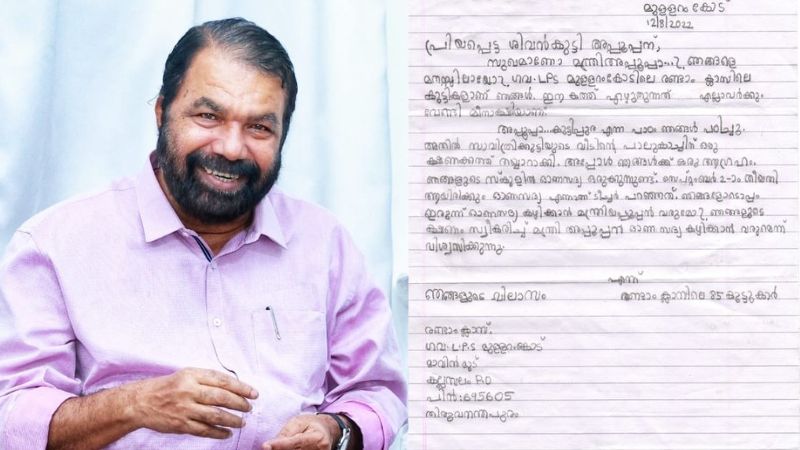 മുള്ളറംകോട്
12/8/2022
പ്രിയപ്പെട്ട ശിവൻകുട്ടി അപ്പൂപ്പന്,
സുഖമാണോ മന്ത്രിഅപ്പൂപ്പാ...?, ഞങ്ങളെ
മനസ്സിലായോ?, ഗവ: L.P.S മുള്ളറംകോടിലെ രണ്ടാം ക്ലാസിലെ
കുട്ടികളാണ് ഞങ്ങൾ. ഈ കത്ത് എഴുതുന്നത് എല്ലാവർക്കും
വേണ്ടി മീനാക്ഷിയാണ്.
അപ്പൂപ്പാ...കുട്ടിപ്പുര എന്ന പാഠം ഞങ്ങൾ പഠിച്ചു.
അതിൽ സാവിത്രിക്കുട്ടിയുടെ വീടിന്റെ പാലുകാച്ചിന് ഒരു
ക്ഷണക്കത്ത് തയ്യാറാക്കി. അപ്പോൾ ഞങ്ങൾക്ക് ഒരു ആഗ്രഹം.
ഞങ്ങളുടെ സ്കൂളിൽ ഓണസദ്യ ഒരുക്കുന്നുണ്ട്. സെപ്റ്റംബർ 2-ാം തീയതി
ആയിരിക്കും ഓണസദ്യ എന്നാണ് ടീച്ചർ പറഞ്ഞത്. ഞങ്ങളോടൊപ്പം
ഇരുന്ന് ഓണസദ്യ കഴിക്കാൻ മന്ത്രിയപ്പൂപ്പൻ വരുമോ?, ഞങ്ങളുടെ
ക്ഷണം സ്വീകരിച്ച് മന്ത്രി അപ്പൂപ്പൻ ഓണസദ്യ കഴിക്കാൻ വരുമെന്ന്
വിശ്വസിക്കുന്നു.
എന്ന്
ഞങ്ങളുടെ വിലാസം രണ്ടാം ക്ലാസിലെ 85 കൂട്ടുകാർ
രണ്ടാം ക്ലാസ്.
ഗവ: L.P.S മുള്ളറംകോട്
മാവിൻമൂട്
കല്ലമ്പലം P.O
പിൻ: 695605
തിരുവനന്തപുരം